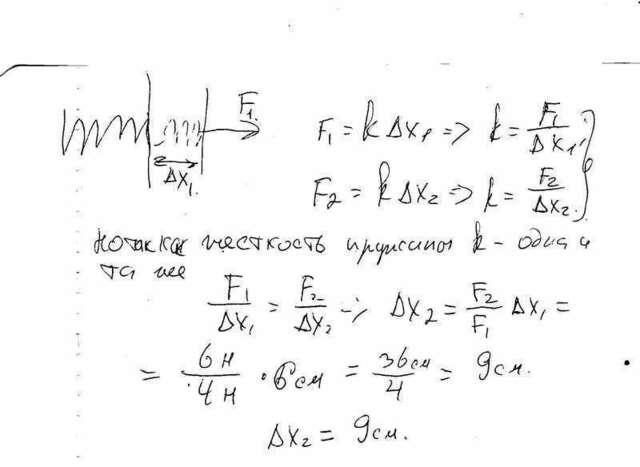 F₁
Δx₁
F₁ = kΔx₁ => k = F₁/Δx₁
F₂ = kΔx₂ => k = F₂/Δx₂
Но так как жесткость пружины k - одна и
та же
F₁/Δx₁ = F₂/Δx₂ => Δx₂ = F₂/F₁ Δx₁ =
= 6н/4н · 6см = 36см/4 = 9см.
Δx₂ = 9см.